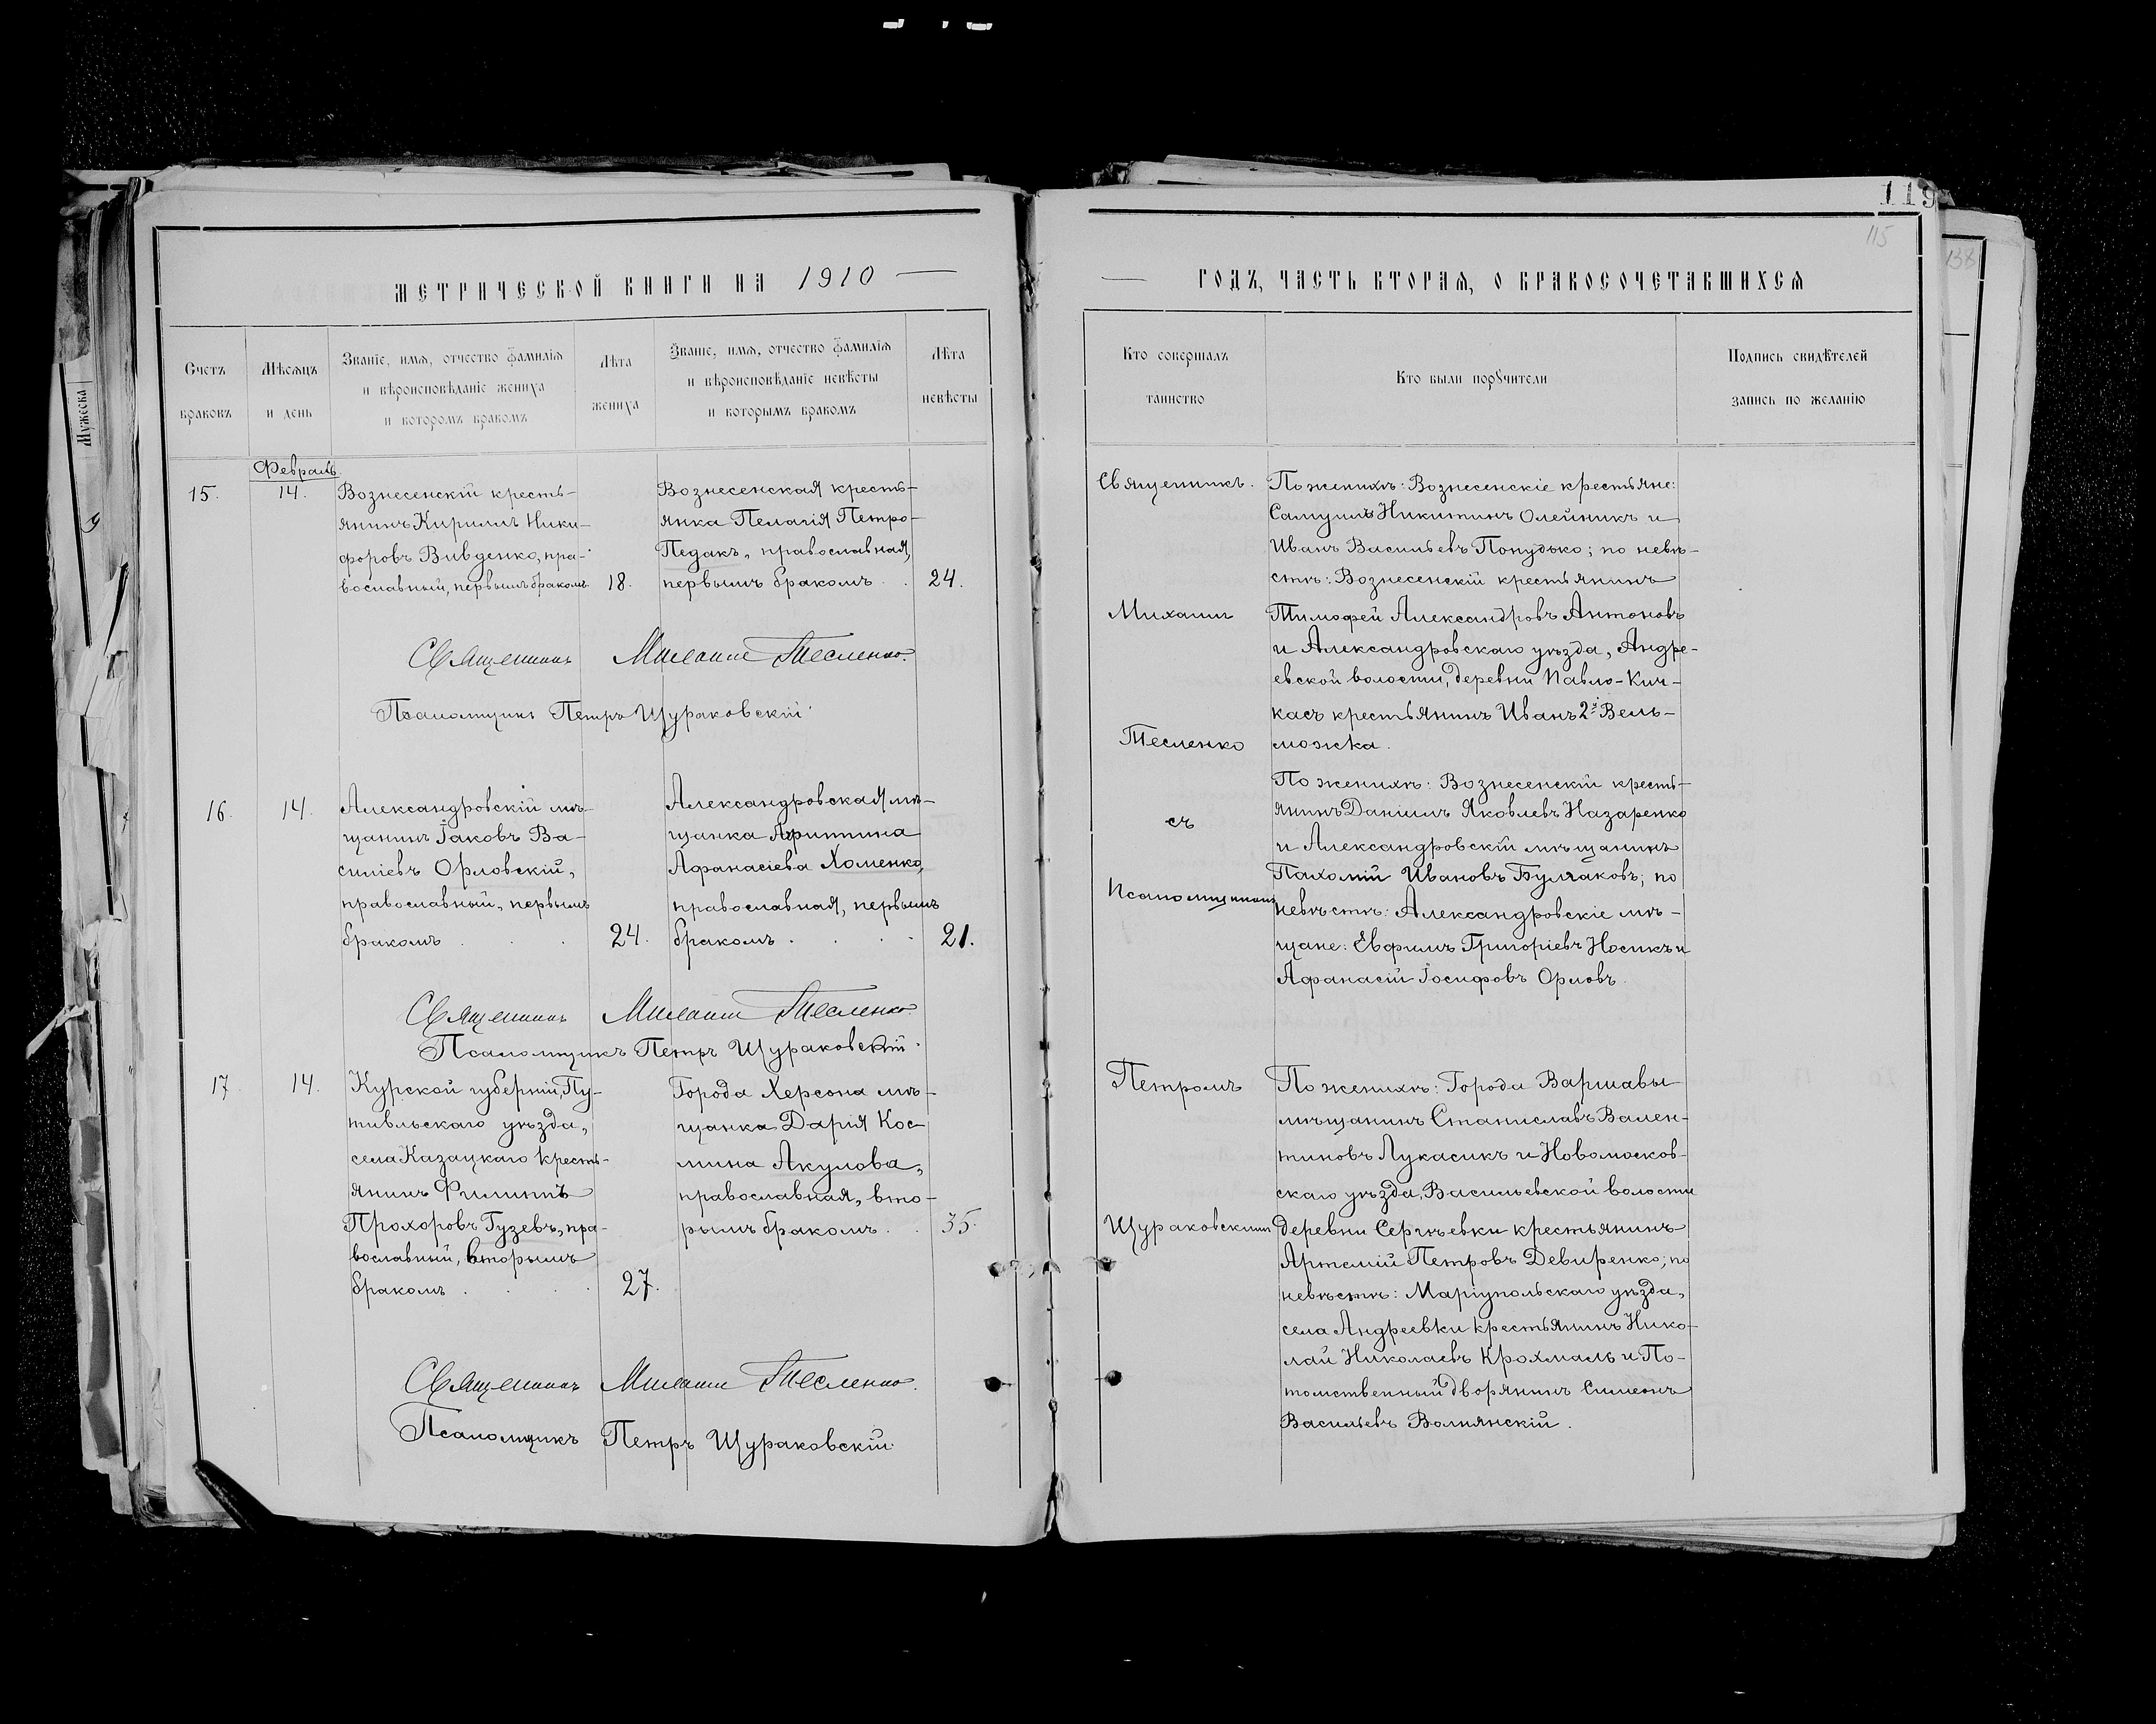 119
115
138
МЕТРИЧЕСКОЙ КНИГИ НА 1910
ГОДЪ, ЧАСТЬ ВТОРАЯ, О БРАКОСОЧЕТАВШИХСЯ
Мужеска
Счетъ
браковъ
Мѣсяцъ
и день
Званіе, имя, отчество фамилія
и вѣроисповѣданіе жениха
и которомъ бракомъ
Лѣта
жениха
Званіе, имя, отчество фамилія
и вѣроисповѣданіе невѣсты
и которымъ бракомъ
Лѣта
невѣсты
Кто совершалъ
таинство
Кто были поручители
Подпись свидѣтелей
запись по желанію
Февраль
15.
14.
Вознесенскій кресть-
янинъ Кириллъ Ники-
форовъ Вивденко, пра-
вославный, первымъ бракомъ
18.
Вознесенская кресть-
янка Пелагія Петро-
Педакъ, православная,
первымъ бракомъ
24.
Священникъ Михаилъ Тесленко.
Псаломщикъ Петръ Щураковскій
16.
14.
Александровскій мѣ-
щанинъ Іаковъ Ва-
силіевъ Орловскій,
православный, первымъ
бракомъ
24.
Александровская мѣ-
щанка Агриппина
Афанасіева Хоменко,
православная, первымъ
бракомъ
21.
Священникъ Михаилъ Тесленко
Псаломщикъ Петръ Щураковскій
17
14.
Курской губерніи, Пу-
тивльскаго уѣзда,
села Казацкаго кресть-
янинъ Филиппъ
Прохоровъ Гузевъ, пра-
вославный, вторымъ
бракомъ
27.
Города Херсона мѣ-
щанка Дарія Кос-
мина Акулова,
православная, вто-
рымъ бракомъ
35.
Священникъ Михаилъ Тесленко.
Псаломщикъ Петръ Щураковскій
Священникъ
Михаилъ
Тесленко
съ
Псаломщикомъ
Петромъ
Щураковскимъ
По женихѣ: Вознесенскіе крестьяне:
Самуилъ Никитинъ Олейникъ и
Иванъ Васильевъ Понудько; по невѣ-
стѣ: Вознесенскій крестьянинъ
Тимофей Александровъ Антоновъ
и Александровскаго уѣзда, Андре-
евской волости, деревни Павло-Кич-
касъ крестьянинъ Иванъ 2й Вель-
можка.
По женихѣ: Вознесенскій кресть-
янинъ Даніилъ Яковлевъ Назаренко
и Александровскій мѣщанинъ
Пахомій Ивановъ Булгаковъ; по
невѣстѣ: Александровскіе мѣ-
щане: Евфимъ Григоріевъ Носикъ и
Афанасій Іосифовъ Орловъ.
По женихѣ: Города Варшавы
мѣщанинъ Станиславъ Вален-
тиновъ Лукасикъ и Новомосков-
скаго уѣзда, Васильевской волости
деревни Сергѣевки крестьянинъ
Артемій Петровъ Девиренко; по
невѣстѣ: Маріупольскаго уѣзда,
села Андреевки крестьянинъ Нико-
лай Николаевъ Крохмаль и По-
томственный дворянинъ Симеонъ
Васильевъ Волнянскій.